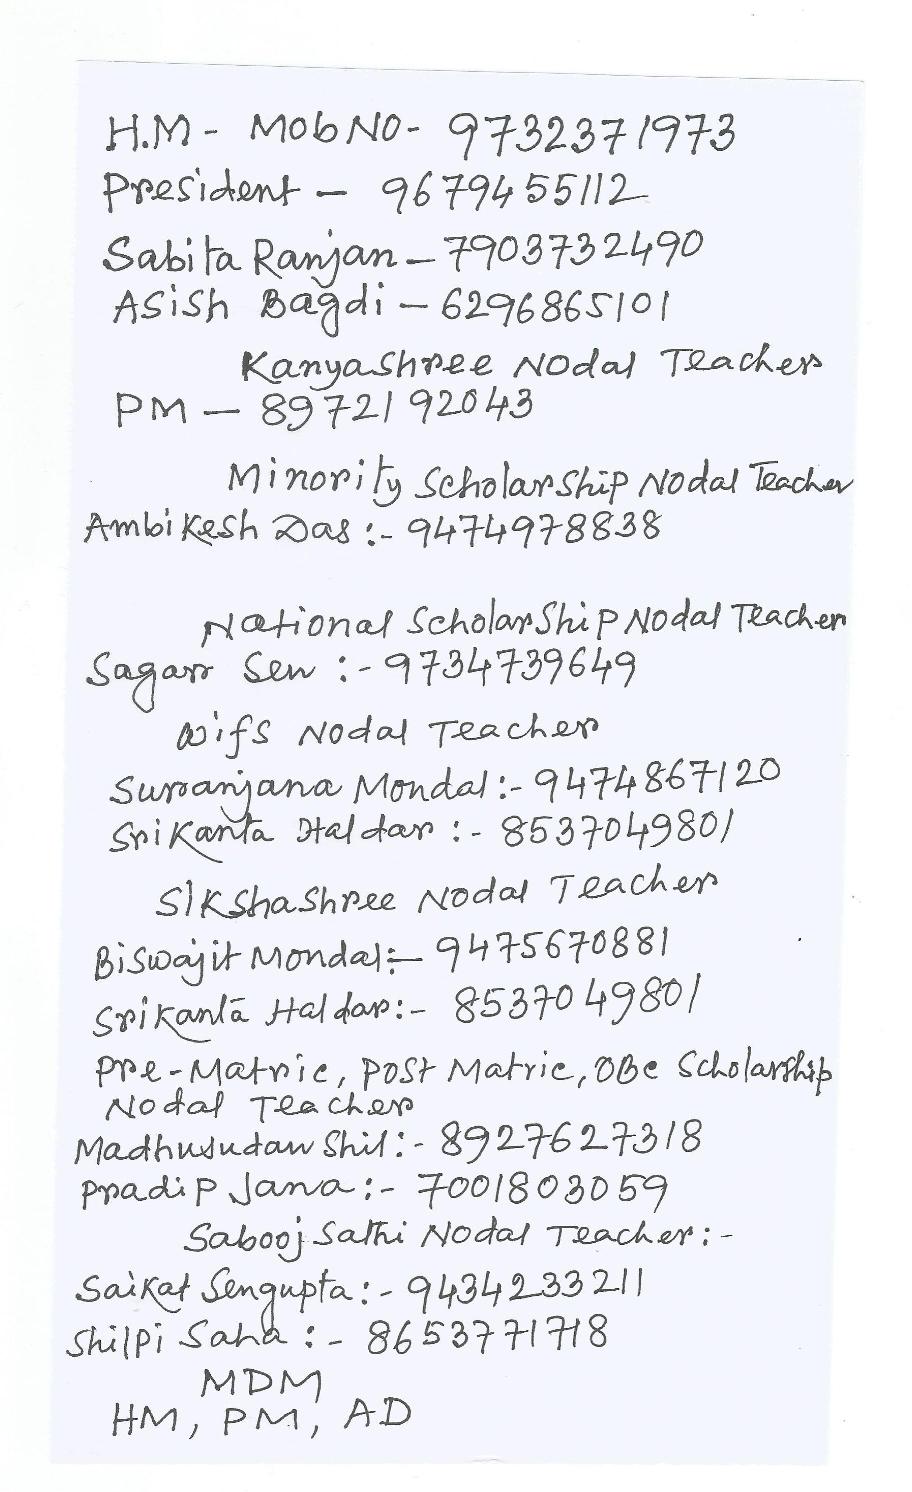 H.M - Mob NO - 9732371973
President - 9679455112
Sabita Ranjan - 7903732490
Asish Bagdi - 6296865101
Kanyashree Nodal Teacher
PM - 8972192043
Minority Scholarship Nodal Teacher
Ambikesh Das :- 9474978838
National Scholarship Nodal Teacher
Sagar Sen :- 9734739649
Wifs Nodal Teacher
Suranjana Mondal :- 9474867120
Srikanta Haldar :- 8537049801
Sikshashree Nodal Teacher
Biswajit Mondal :- 9475670881
Srikanta Haldar :- 8537049801
Pre-Matric, Post Matric, OBC Scholarship
Nodal Teacher
Madhusudan Shil :- 8927627318
Pradip Jana :- 7001803059
Sabooj Sathi Nodal Teacher :-
Saikat Sengupta :- 9434233211
Shilpi Saha :- 8653771718
MDM
HM, PM, AD